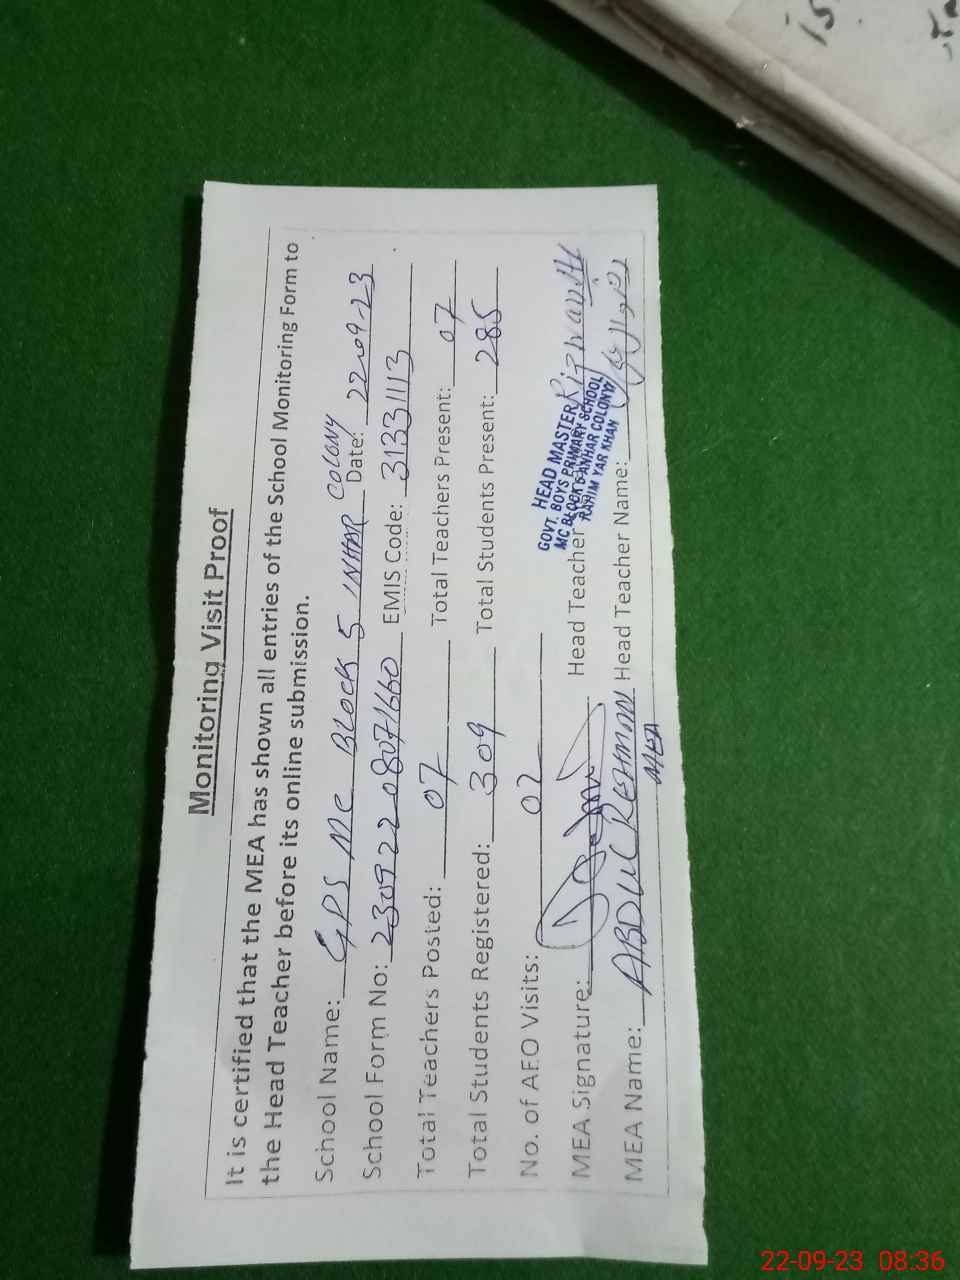 Monitoring Visit Proof
It is certified that the MEA has shown all entries of the School Monitoring Form to
the Head Teacher before its online submission.
School Name: GPS MC Block 5 INHAR COLONY Date: 22-09-23
School Form No: 230922 08071660 EMIS Code: 31331113
Total Teachers Posted: 07 Total Teachers Present: 07
Total Students Registered: 309 Total Students Present: 285
No. of AEO Visits: 02
HEAD MASTER
GOVT. BOYS PRIMARY SCHOOL
MC BLOCK 5 ANHAR COLONY
RAHIM YAR KHAN
MEA Signature: Head Teacher
MEA Name: ABDUL REHMAN Head Teacher Name:
MEA
22-09-23 08:36